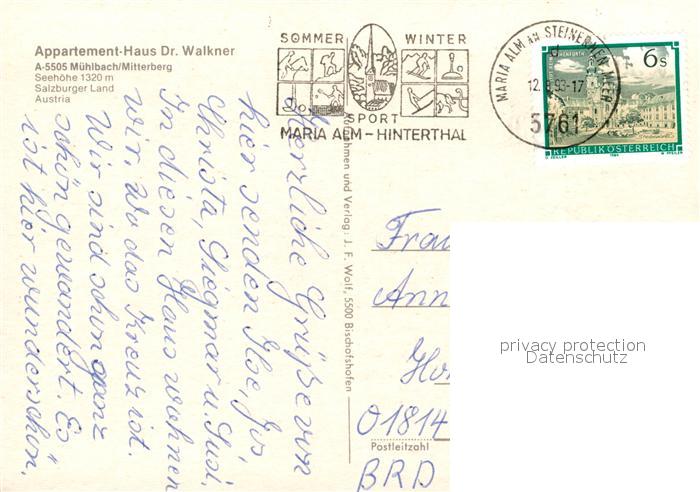 Appartement-Haus Dr. Walkner
A-5505 Mühlbach/Mitterberg
Seehöhe 1320 m
Salzburger Land
Austria
SOMMER WINTER
SPORT
MARIA ALM-HINTERTHAL
MARIA ALM AM STEINERNEN MEER
12. 8.93-17
5761
6 S
REPUBLIK ÖSTERREICH
Herzliche Grüße von
hier senden Ilse,
Christa, Siegmar u. Susi.
In diesem Haus wohnen
wir wo das Kreuz ist.
Wir sind schon ganz
schön gewandert. Es
ist hier wunderschön.
Aufnahmen und Verlag: J. F. Wolf, 5500 Bischofshofen
Frau
Ann
01814
Postleitzahl
BRD
privacy protection
Datenschutz